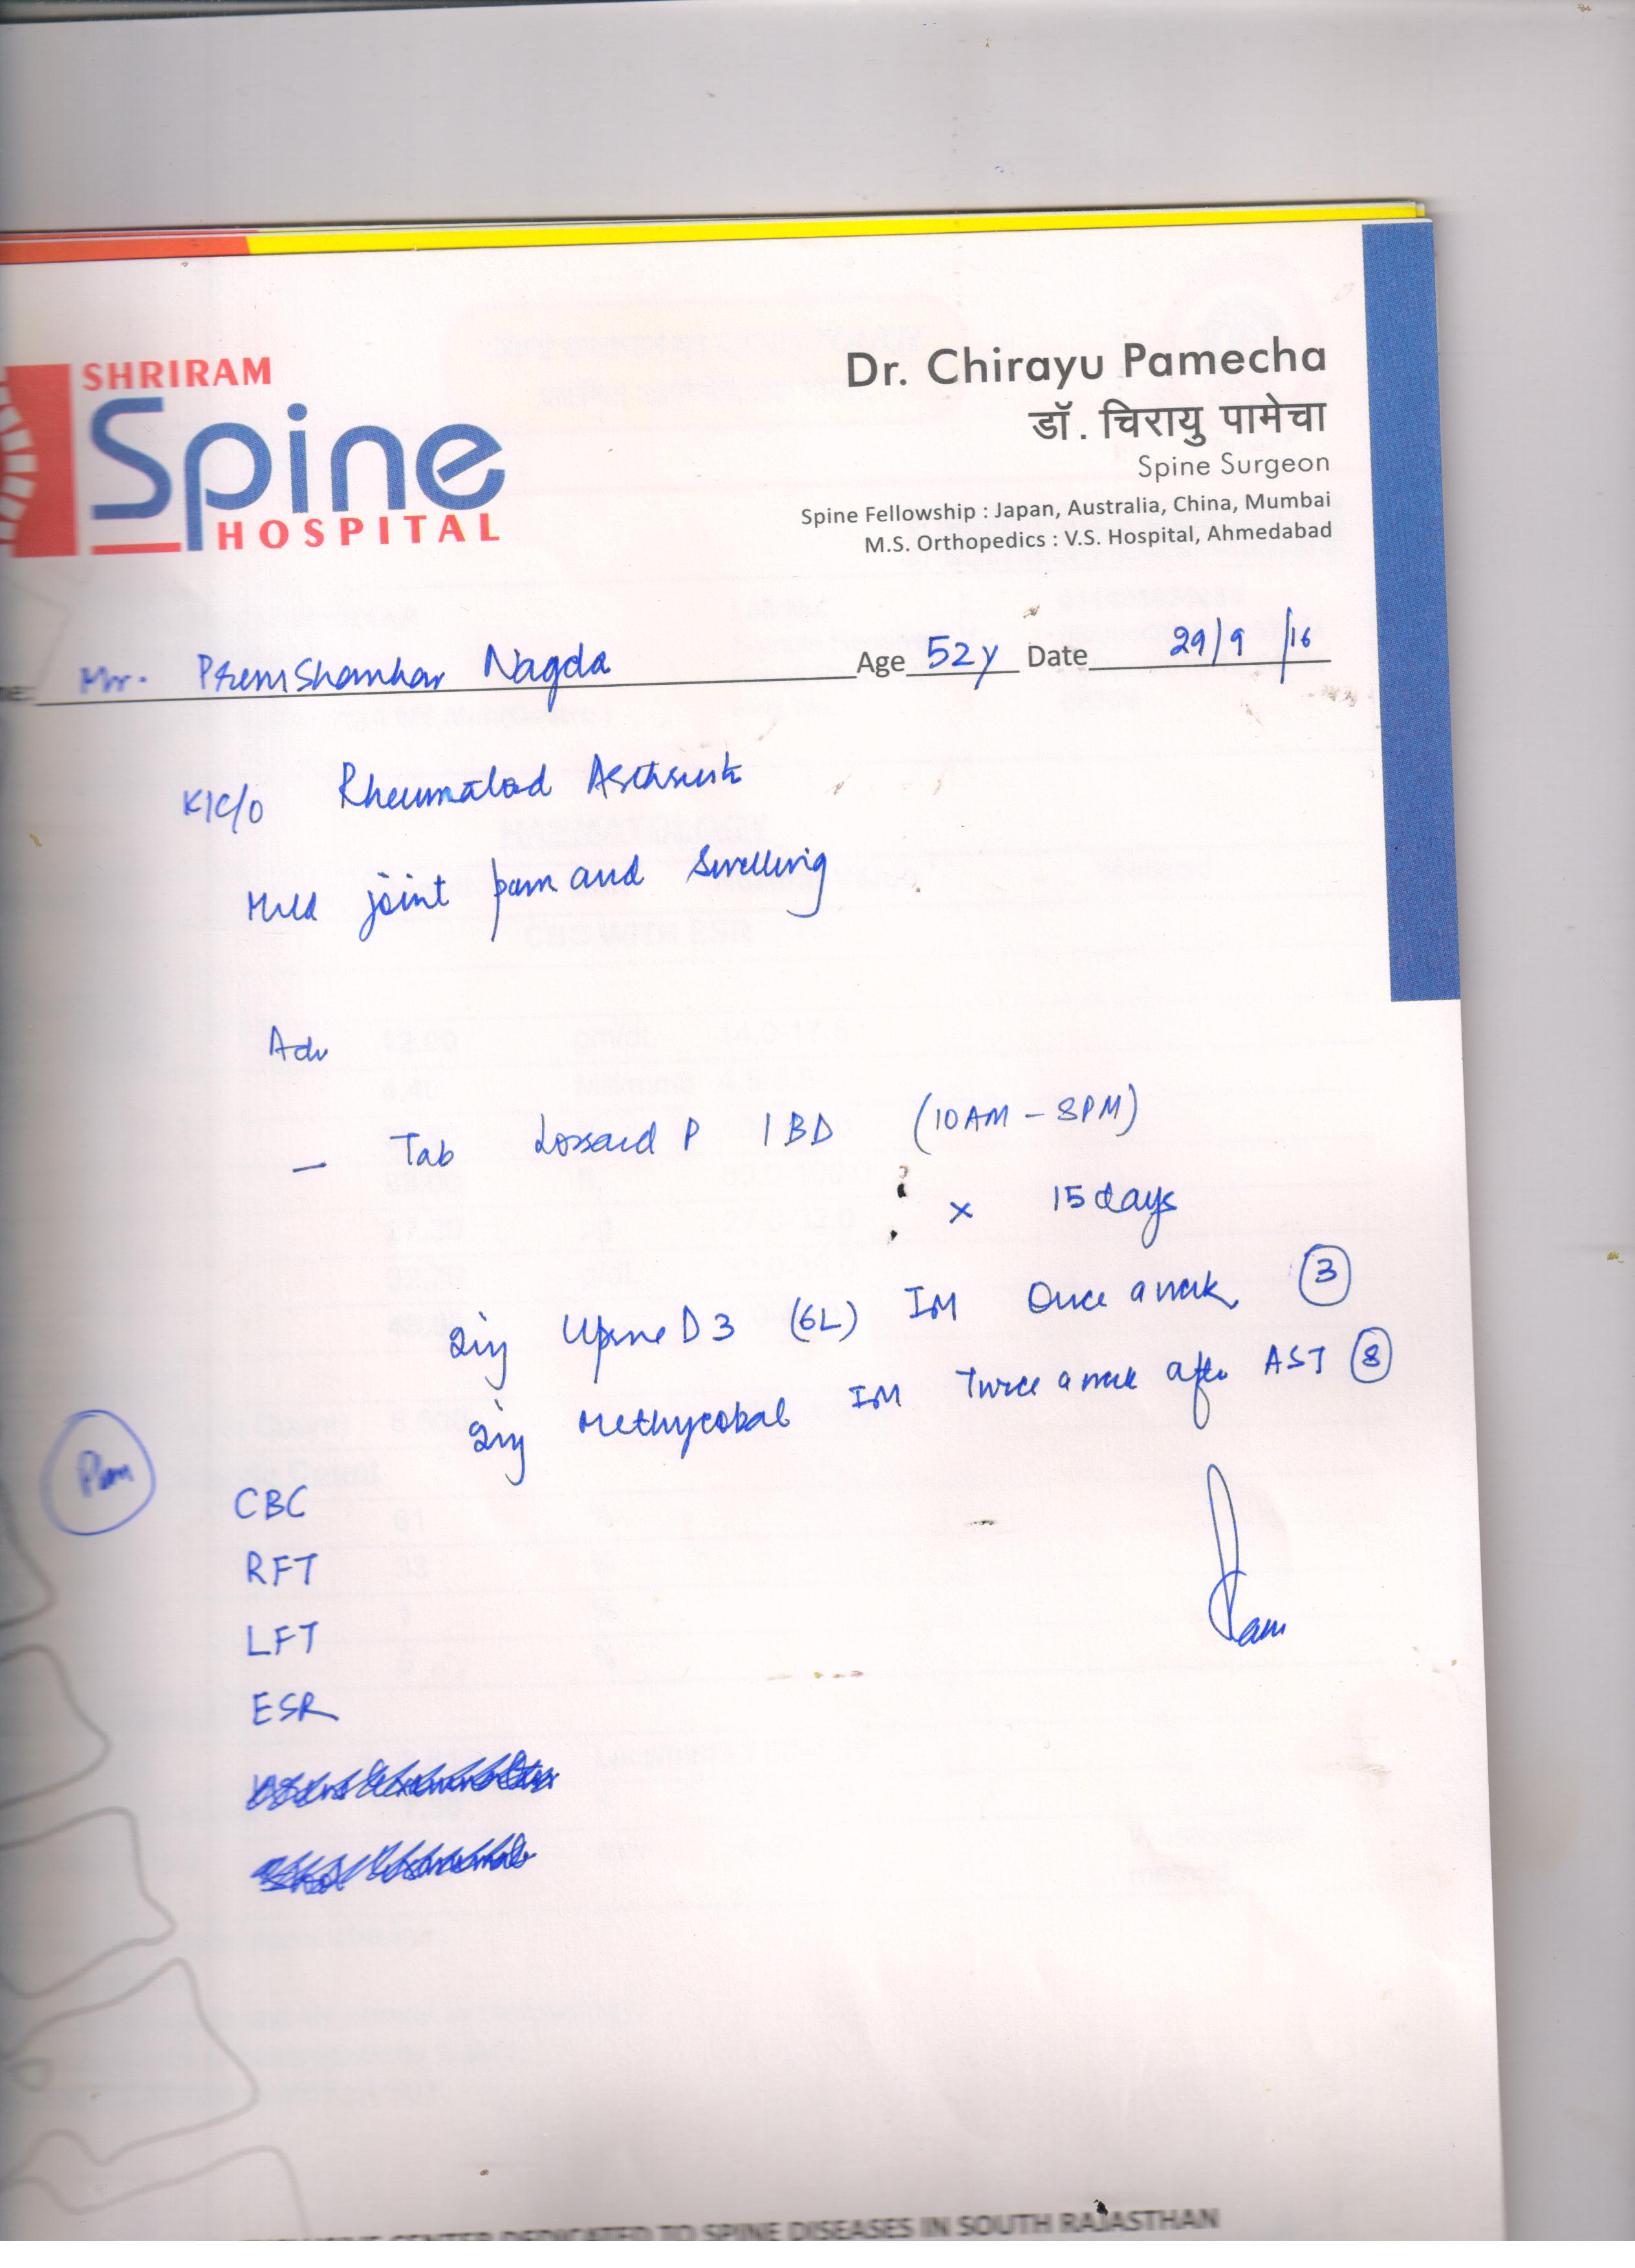 SHRIRAM
Spine
HOSPITAL
Dr. Chirayu Pamecha
डॉ. चिरायु पामेचा
Spine Surgeon
Spine Fellowship : Japan, Australia, China, Mumbai
M.S. Orthopedics : V.S. Hospital, Ahmedabad
Mr. PremShankar Nagda Age 52y Date 29/9/16
K/C/O Rheumatoid Arthritis
Mild joint pain and Swelling
Adv
- Tab P 1 BD (10AM - 8PM)
x 15 days
Inj D3 (6L) IM Once a week 3
Inj Methycobal IM Twice a week after AST 8
Plan
CBC
RFT
LFT
ESR
CENTER DEDICATED TO SPINE DISEASES IN SOUTH RAJASTHAN